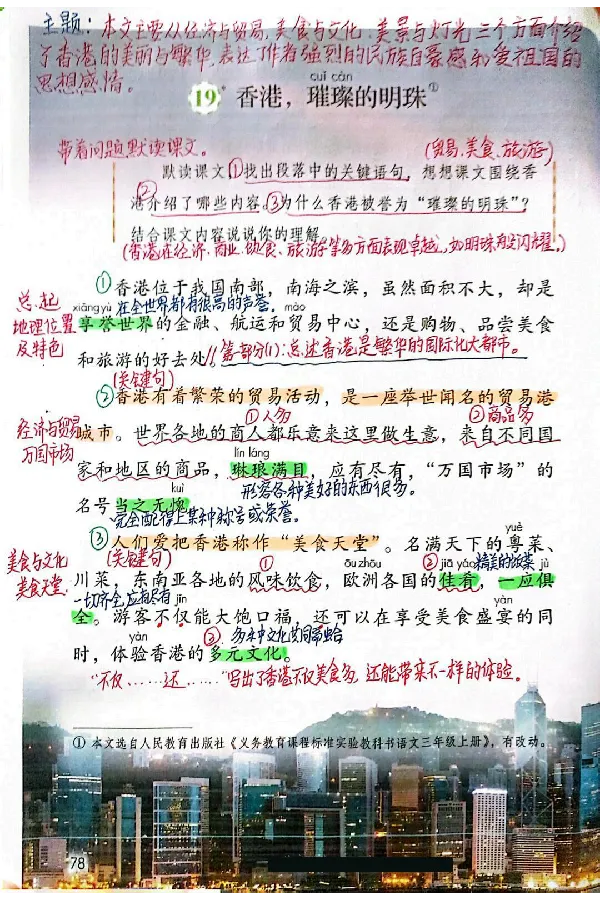 主题：本文主要从经济与贸易、美食与文化、美景与灯光三个方面介绍
了香港的美丽与繁华,表达了作者强烈的民族自豪感和爱祖国的
思想感情。
cuǐ càn
19* 香港，璀璨的明珠①
带着问题默读课文。 (贸易、美食、旅游)
默读课文①找出段落中的关键语句，想想课文围绕香
港②介绍了哪些内容。③为什么香港被誉为“璀璨的明珠”？
结合课文内容说说你的理解。
(香港在经济、商业、饮食、旅游等多方面表现卓越，如明珠般闪耀。)
①香港位于我国南部，南海之滨，虽然面积不大，却是
总起
xiǎng yù 在全世界都有很高的声誉。 mào
地理位置 享誉世界的金融、航运和贸易中心，还是购物、品尝美食
及特色 和旅游的好去处。//第一部分(1):总述香港是繁华的国际化大都市。
(关键句)
②香港有着繁荣的贸易活动，是一座举世闻名的贸易港
①人多 ②商品多
经济与贸易 城市。世界各地的商人都乐意来这里做生意，来自不同国
万国市场 lín láng
家和地区的商品，琳琅满目，应有尽有，“万国市场”的
kuì 形容各种美好的东西很多。
名号当之无愧。
完全配得上某种称号或荣誉。
③人们爱把香港称作“美食天堂”。名满天下的粤菜、
yuè
美食与文化 (关键句) ① ōu zhōu ② jiā yáo 精美的饭菜 jù
美食天堂 川菜，东南亚各地的风味饮食，欧洲各国的佳肴，一应俱
一切齐全,应有尽有 jǐn yàn
全。游客不仅能大饱口福，还可以在享受美食盛宴的同
yàn ③多种文化共同
时，体验香港的多元文化。
“不仅……还……”写出了香港不仅美食多,还能带来不一样的体验。
① 本文选自人民教育出版社《义务教育课程标准实验教科书语文三年级上册》，有改动。
78